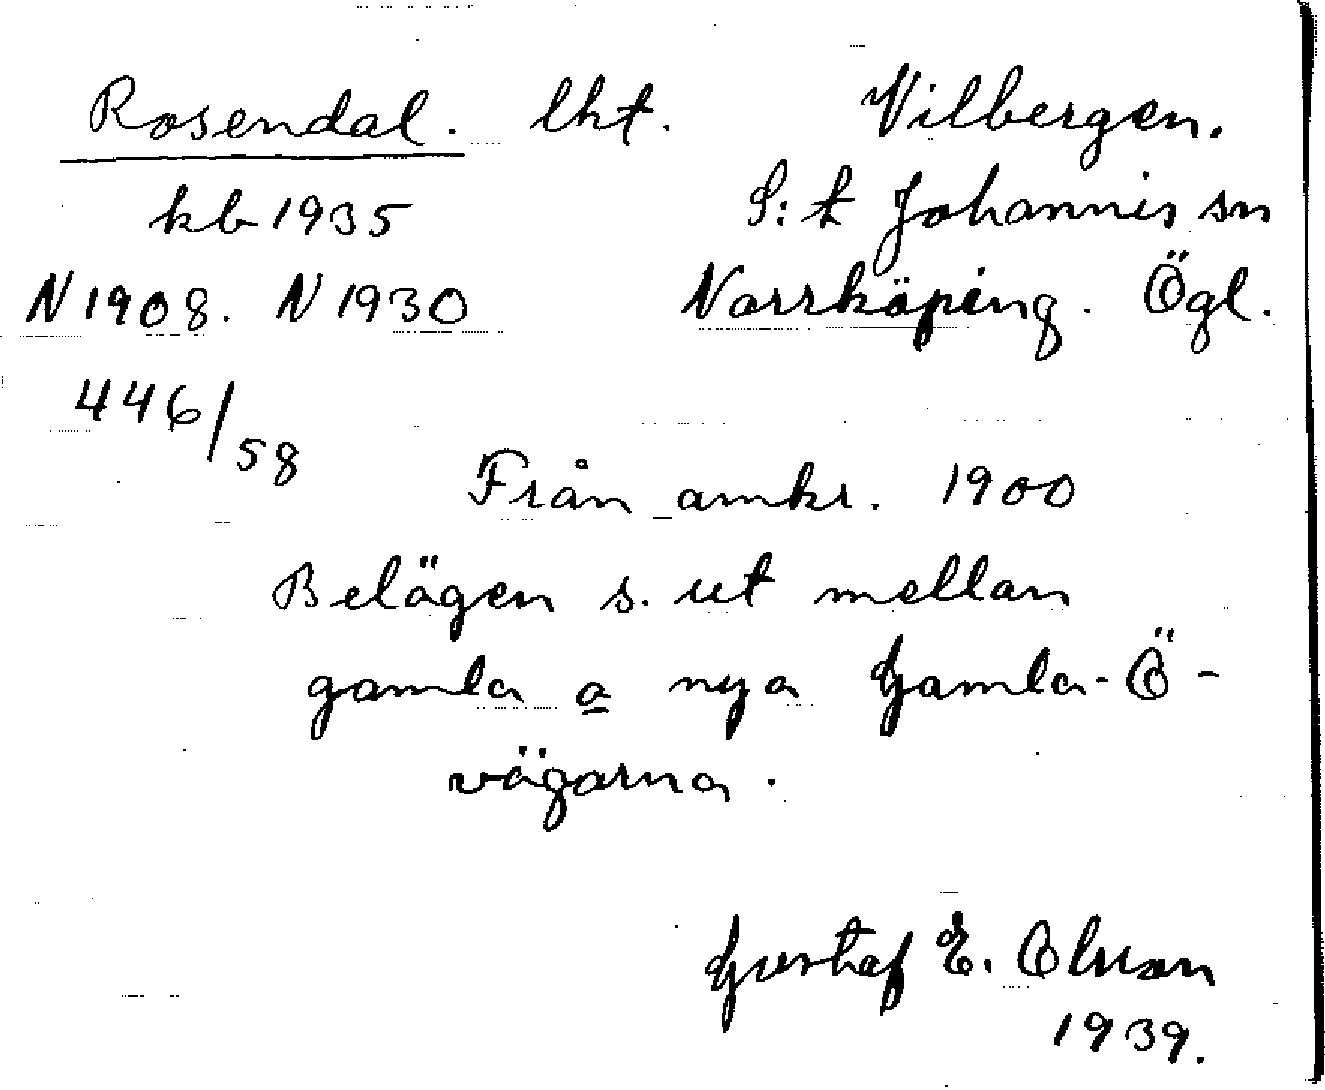 Rosendal. lht. Vilbergen.
kb 1935 S:t Johannis sn
N 1908. N 1930 Norrköping. Ögl.
446/58
Från omkr. 1900
Belägen s. ut mellan
gamla o nya Gamla-Ö-
vägarna.
Gustaf E. Olsson
1939.